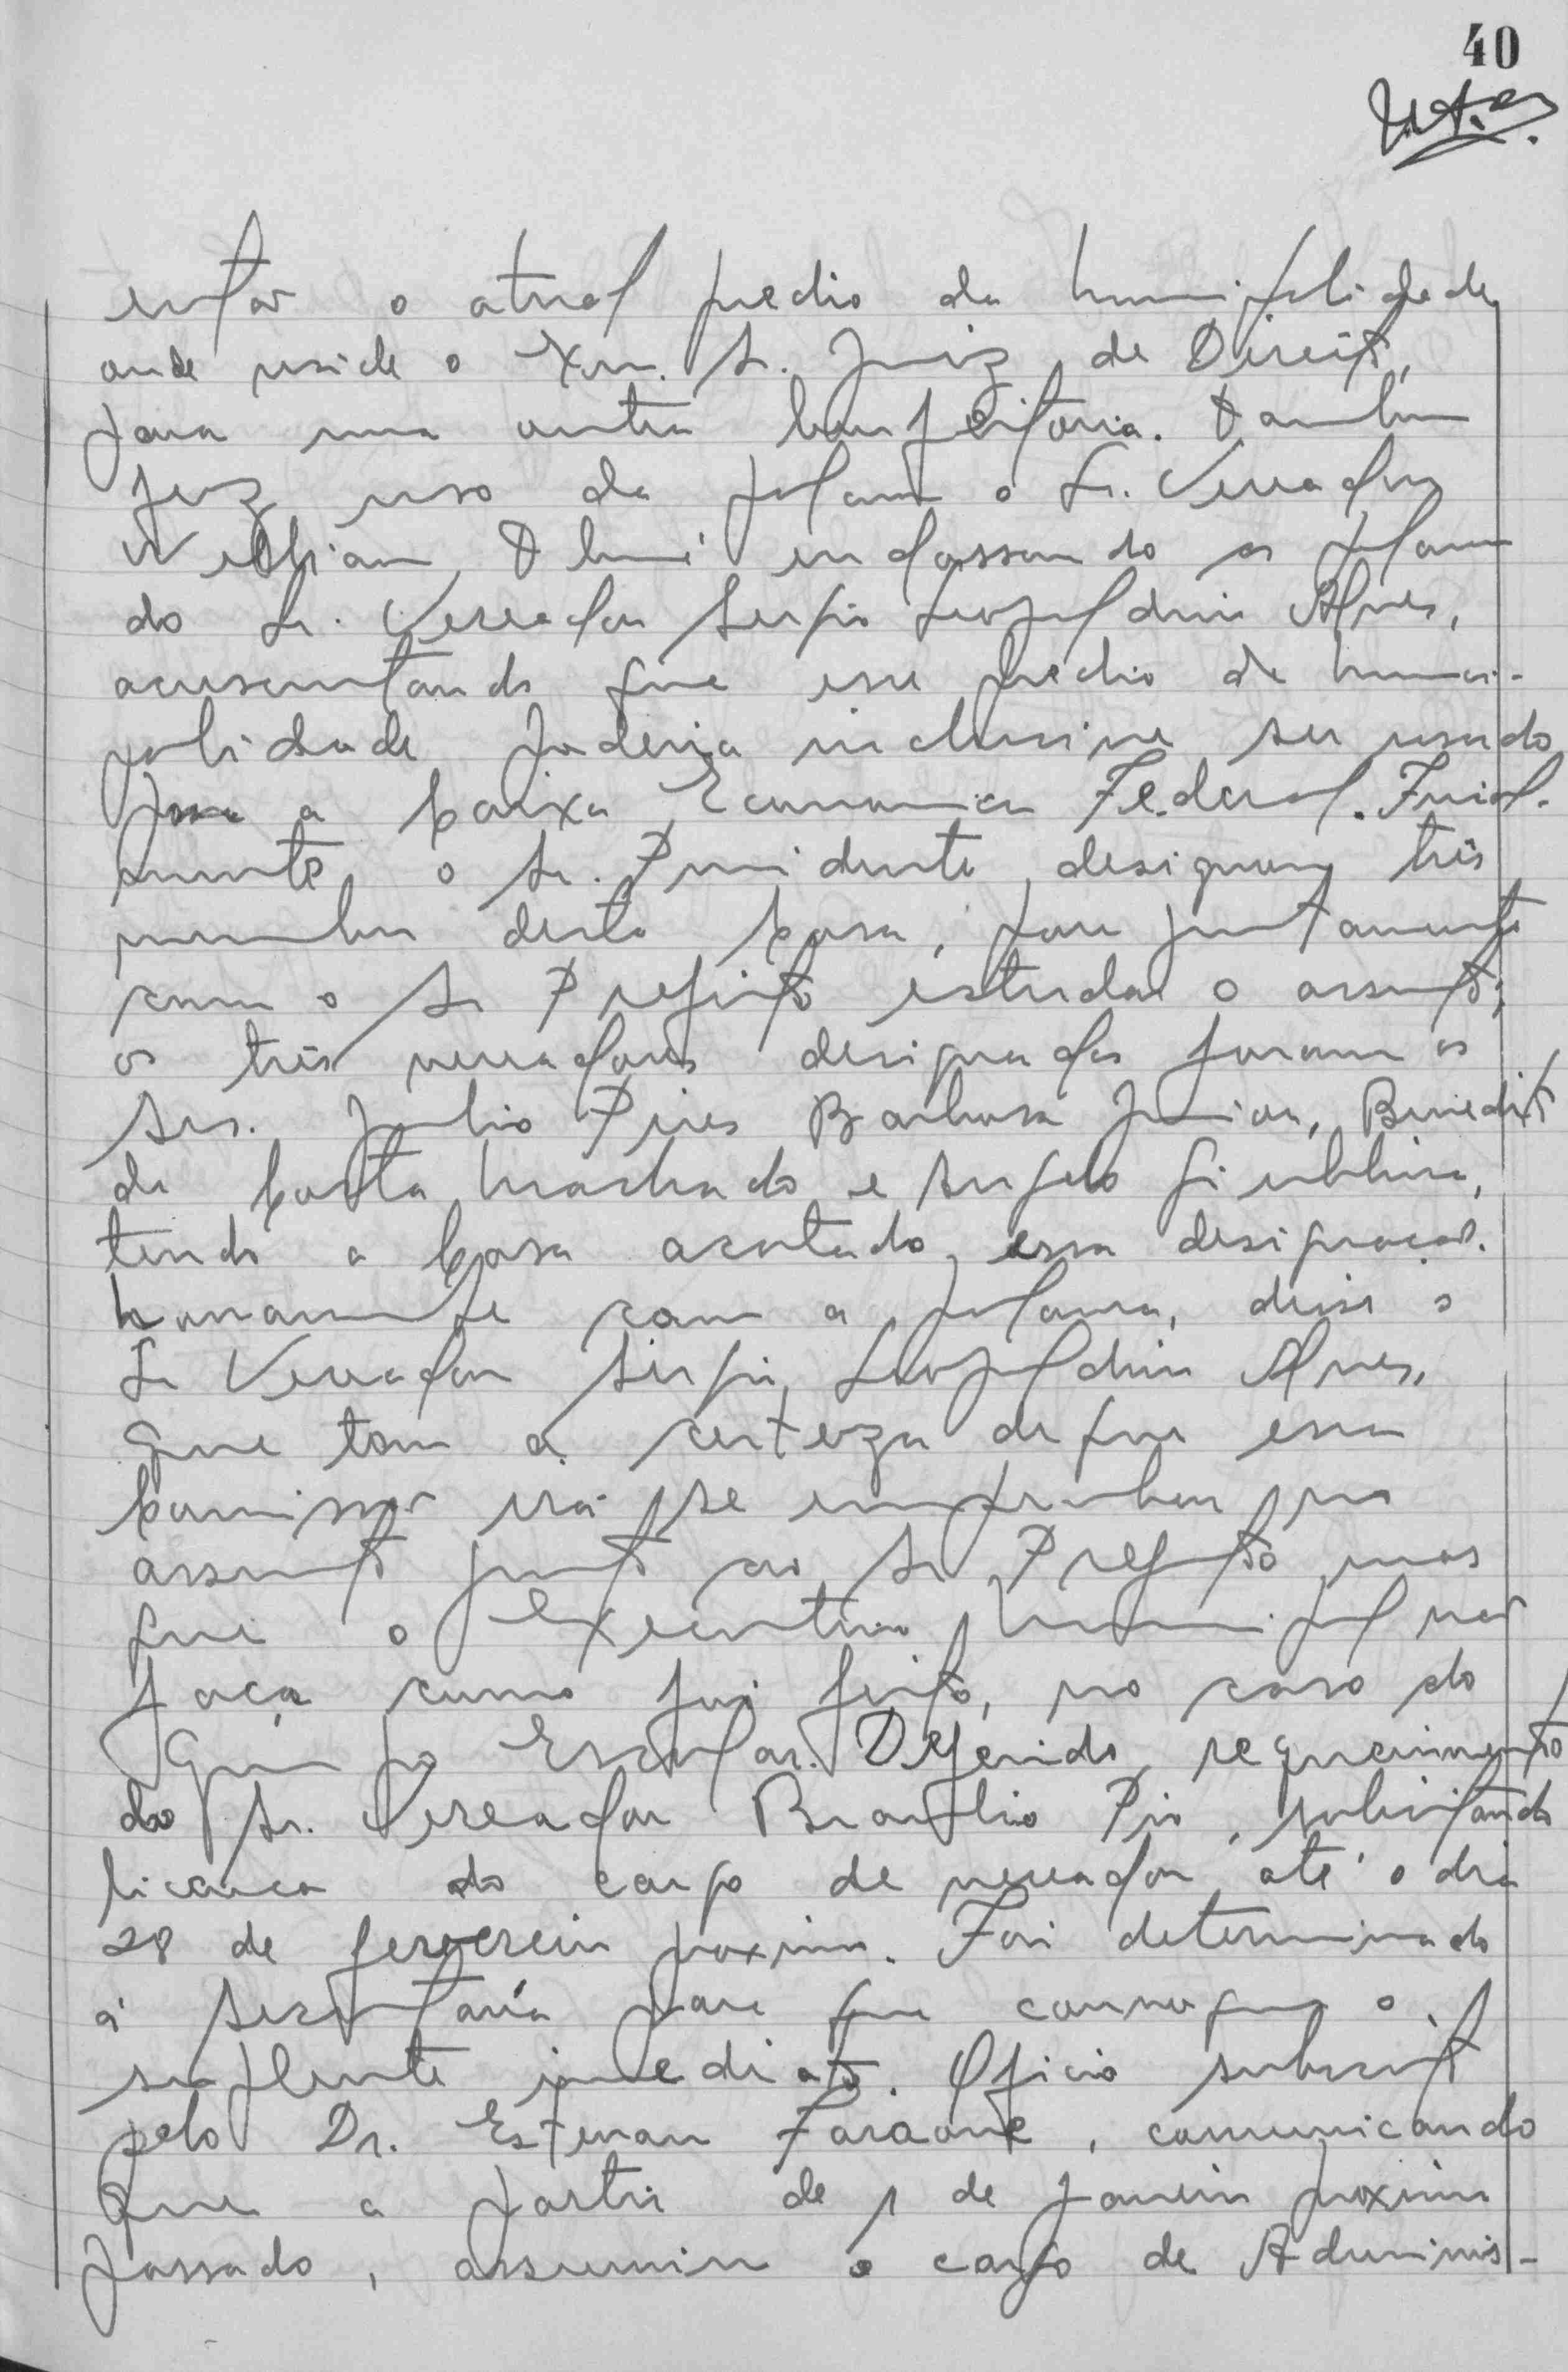 40
o atual predio da Municipalidade,
onde reside o Exm. Sr. Juiz de Direito,
para uma outra benfeitoria. Tambem
fez uso da palavra o Sr. Vereador
Willian endossando as palavras
do Sr. Vereador Sergio Leopoldino Alves,
acrescentando que esse predio da Munici-
palidade poderia inclusive ser usado
para a Caixa Economica Federal. Final-
mente, o Sr. Presidente designou três
membros desta Casa, para juntamente
com o Sr Prefeito estudar o assunto;
os três vereadores designados foram os
Srs. Julio Pires Barbosa Junior, Benedito
da Costa Machado e Angelo
tendo a Casa acatado essa designação.
Novamente com a palavra, disse o
Sr Vereador Sergio Leopoldino Alves,
que tem a certeza de que essa
Comissão irá se empenhar no
assunto junto ao Sr Prefeito mas
que o Executivo Municipal não
faça como foi feito, no caso do
Grupo Escolar. Deferido requerimento
do Sr. Vereador Braulio Pio, solicitando
licença do cargo de vereador até o dia
28 de fevereiro proximo. Foi determinado
á Secretaría para que convoque o
suplente imediato. Oficio subscrito
pelo Dr. Estevan Faraone, comunicando
que a partir de 1 de Janeiro proximo
passado, assumiu o cargo de Adminis-